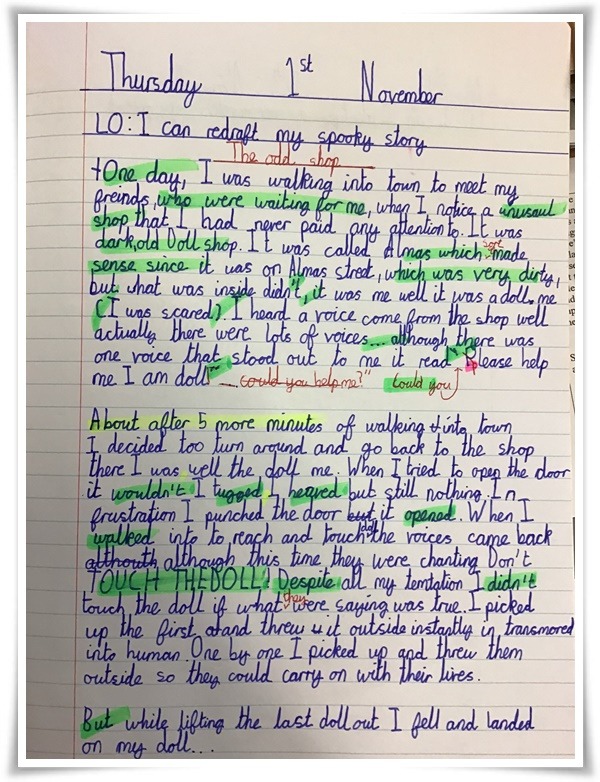 Thursday 1st November
LO: I can redraft my spooky story
The odd shop
One day, I was walking into town to meet my
freinds, who were waiting for me, when I notice a unusaul
shop that I had never paid any attention to. It was
dark, old Doll shop. It was called Almas which sort made
sense since it was on Almas street, which was very dirty,
but what was inside didn't, it was me well it was a doll me
(I was scared). I heard a voice come from the shop well
actually there were lots of voices... although there was
one voice that stood out to me it read "Please help
me I am doll" could you help me?" Could you
About after 5 more minutes of walking into town
I decided too turn around and go back to the shop
there I was well the doll me. When I tried to open the door
it wouldn't I tugged I heaved but still nothing. In
frustration I punched the door but it opened. When I
walked into to reach and touch the doll the voices came back
althouth although this time they were chanting Don't
TOUCH THE DOLL! Despite all my temtation I didn't
touch the doll if what they were saying was true. I picked
up the first and threw it outside instantly in transmored
into human. One by one I picked up and threw them
outside so they could carry on with their lives.
But while lifting the last doll out I fell and landed
on my doll...